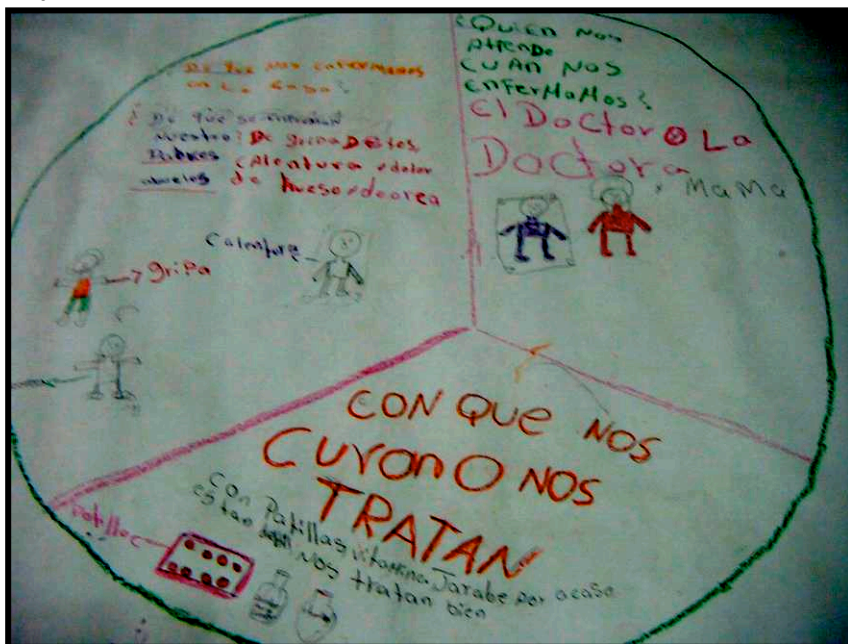 De que nos enfermamos
en La casa?
¿De que se enferman
nuestro? De gripa De tos,
Padres calentura, dolor
abuelos de hueso,
calentura
gripa
¿Quien nos
atiende
CUAN NOS
EnferMaMos?
El DoCtor O La
DoCtora
y MaMa
CON QUe NOS
CuranO NOS
TRATAN
Con Patillas, vitamina, Jarabe por acaso
estan nos tratan bien